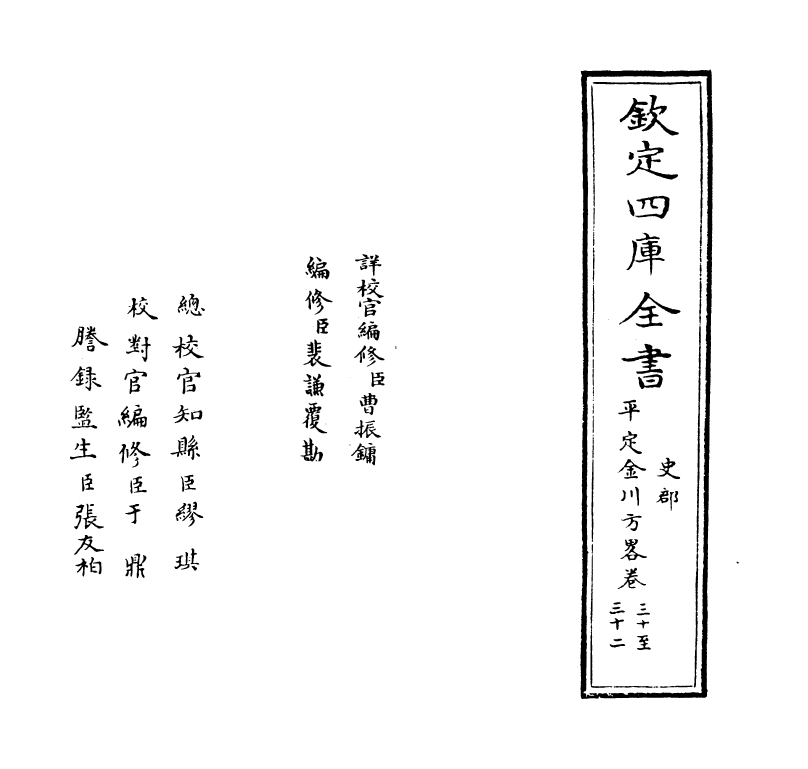 欽定四庫全書
史部
平定金川方畧卷
三十至
三十二
詳校官編修臣曹振鏞
編修臣裴謙覆勘
總校官知縣臣繆琪
校對官編修臣于鼎
謄錄監生臣張友柏